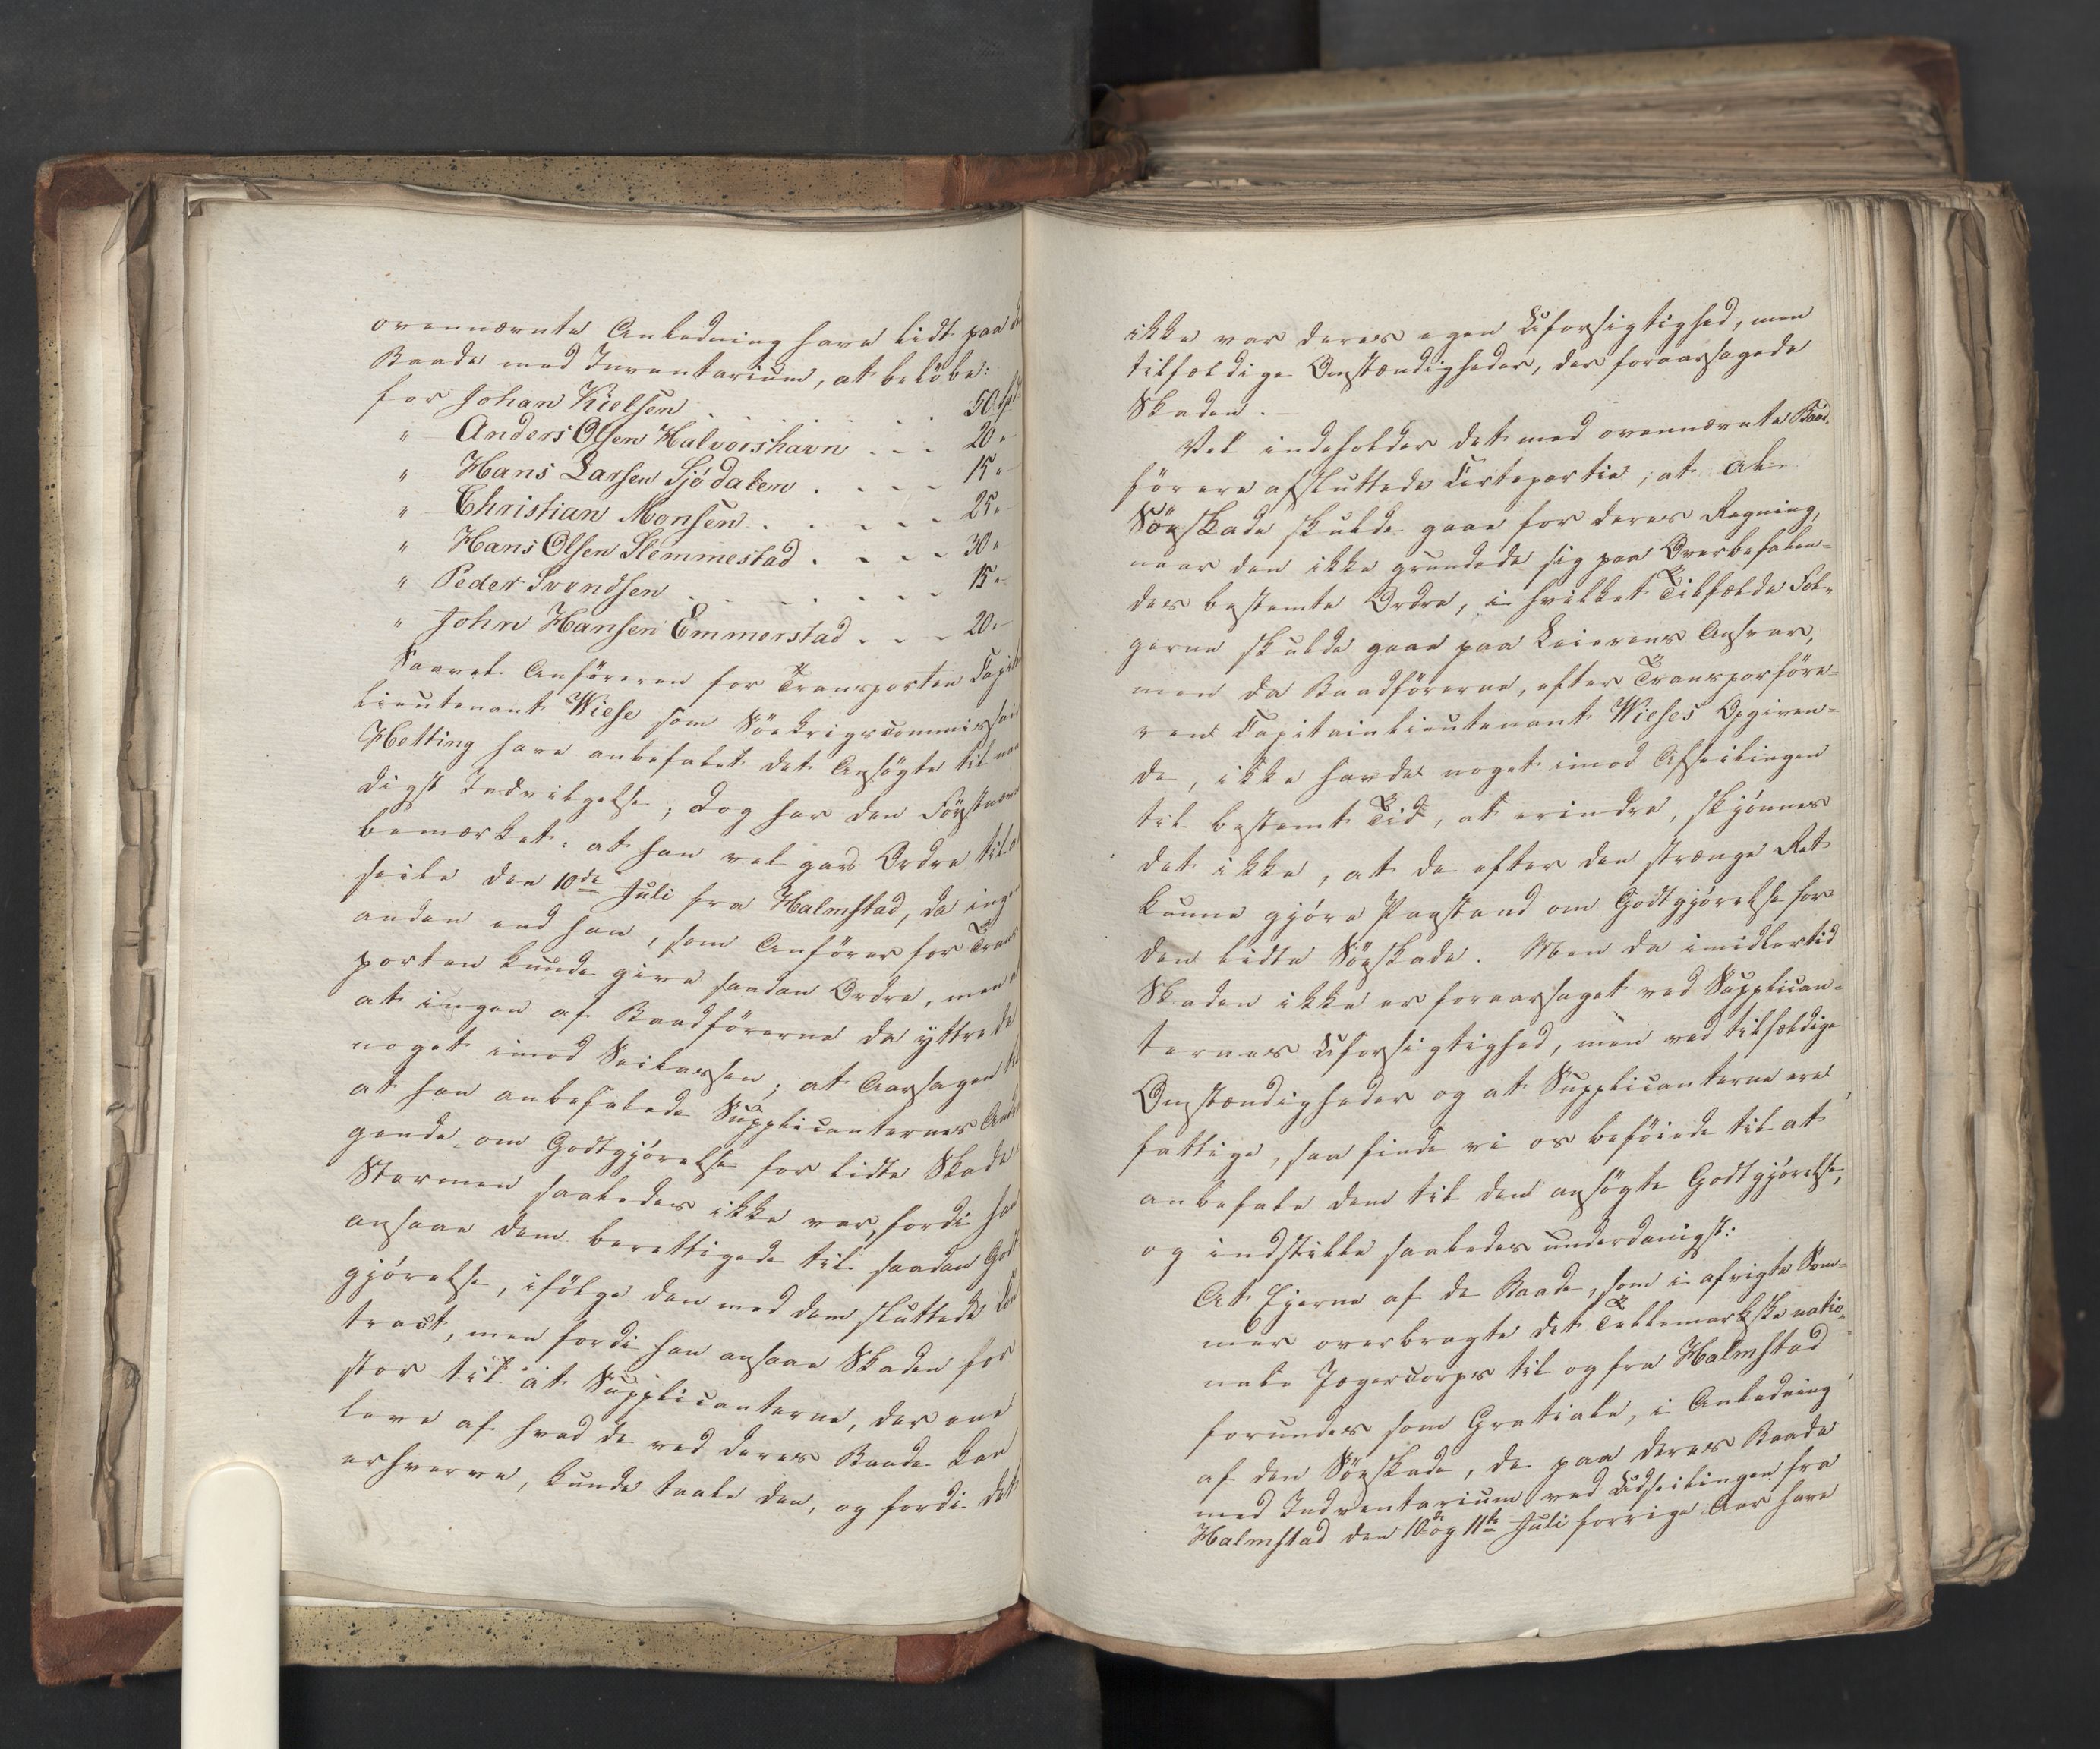 ovennævnte Anledning have lidt paa de
Baade med Inventarium, at beløbe:
for Johan Kielsen . . . . . . 50 Spd
" Anders Olsen Halvorshavn . . . 20 "
" Hans Larsen Sjödalen . . . . 15 "
" Christian Monsen . . . . . . 25 "
" Hans Olsen Slemmestad . . . . 30 "
" Peder Svendsen . . . . . . . 15 "
" John Hansen Emmerstad . . . 20 "
Saavel Anföreren for Transporten Capit
lieutenant Wiese som Söekrigscommissair
Hetting have anbefalet det Ansögte til naa
digst Indvilgelse; dog har den Förstnævn
bemærket: at han vel gav Ordre til a
seile den 10de Juli fra Halmstad, da inge
anden end han, som Anförer for Trans
porten kunde give saadan Ordre, men a
at ingen af Baadförerne da yttrede
noget imod Seiladsen; at Aarsagen til
at han anbefalede Supplicanternes Andra
gende om Godtgjörelse for lidte Skade i
Stormen saaledes ikke var, fordi han
ansaae dem berettigede til saadan Godt
gjörelse, ifölge den med dem sluttede Con
tract, men fordi han ansaae Skaden for
stor til at Supplicanterne, der ene
leve af hvad de ved deres Baade kan
erhverve, kunde taale den, og fordi det
ikke var deres egen Uforsigtighed, men
tilfældige Omstændigheder, der foraarsagede
Skaden. –
Vel indeholder det med ovennævnte Baad-
förere afsluttede Certepartie, at al
Söeskade skulde gaae for deres Regning,
naar den ikke grundede sig paa Overbefalen-
des bestemte Ordre, i hvilket Tilfælde Föl-
gerne skulde gaae paa Leierens Ansvar,
men da Baadförerne, efter Transportföre-
ren Capitainlieutenant Wieses Opgiven-
de, ikke havde noget imod Afseilingen
til bestemt Tid, at erindre, skjönnes
det ikke, at de efter den strænge Ret
kunne gjöre Paastand om Godtgjörelse for
den lidte Söeskade. Men da imidlertid
Skaden ikke er foraarsaget ved Supplican-
ternes Uforsigtighed, men ved tilfældige
Omstændigheder og at Supplicanterne ere
fattige, saa finde vi os beföiede til at
anbefale dem til den ansögte Godtgjörelse,
og indstille saaledes underdanigst:
At Eierne af de Baade, som i afvigte Som-
mer overbragte det Tellemarkske natio-
nale Jægercorps til og fra Halmstad
forundes som Gratiale, i Anledning
af den Söeskade, de paa deres Baade
med Indventarium ved Udseilingen fra
Halmstad den 10de og 11te Juli forrige Aar have